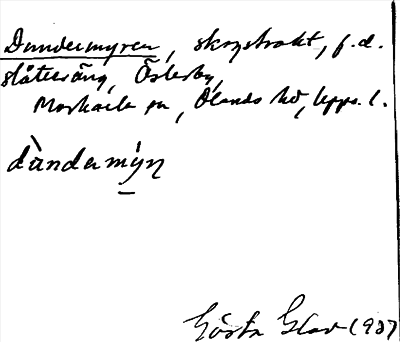 Dundermyren, skogstrakt, f.d.
slåtteräng, Österby,
Morkarla sn, Olands hd, Upps. l.
dùndermýn
Gösta
1937